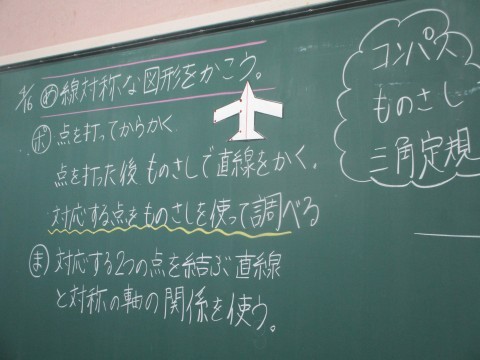 4/16 め 線対称な図形をかこう。
ポ 点を打ってからかく
点を打った後ものさしで直線をかく。
対応する点をものさしを使って調べる
ま 対応する2つの点を結ぶ直線
と対称の軸の関係を使う。
コンパス
ものさし
三角定規